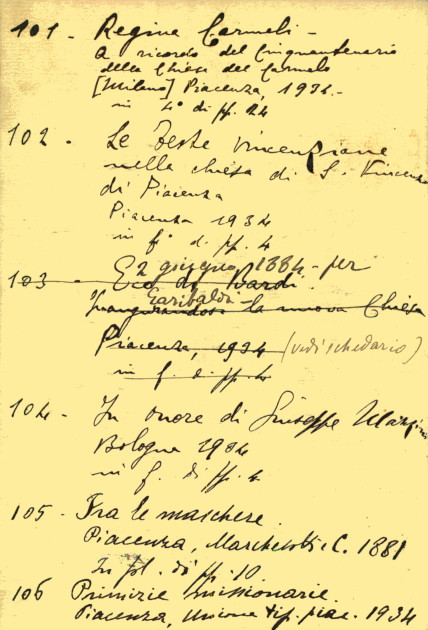 101 - Regina Carmeli -
a ricordo del Cinquantenario
della Chiesa del Carmelo
[Milano] Piacenza, 1934.-
in 4° di pp. 24
102 - Le Feste vincenziane
nella chiesa di S. Vincenzo
di Piacenza
Piacenza 1934
in f° d. pp. 4
2 giugno 1884 - per
103 - Eco di Bardi
Garibaldi -
Inaugurandosi la nuova Chiesa
Piacenza, 1934 (vedi schedario)
in f. d. pp. 4
104 - In onore di Giuseppe
Bologna 1904
in f. di pp. 4
105 - Fra le maschere.
Piacenza, Marchesotti. C. 1881
In fol. di pp. 10
106 Primizie missionarie.
Piacenza, Unione tip. piac. 1934